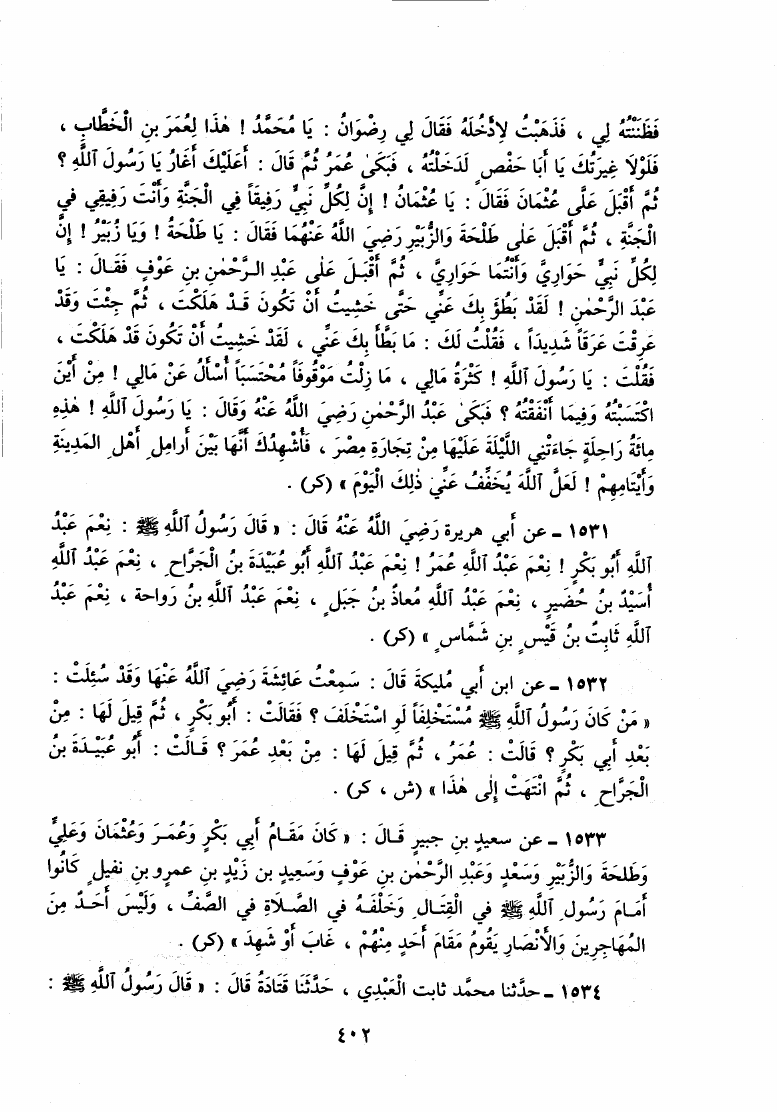 فَظَنَنْتُهُ لِي ، فَذَهَبْتُ لِأَدْخُلَهُ فَقَالَ لِي رِضْوَانُ : يَا مُحَمَّدُ ! هٰذَا لِعُمَرَ بنِ الْخَطَّابِ ،
فَلَوْلاَ غِيرَتُكَ يَا أَبَا حَفْصٍ لَدَخَلْتُهُ ، فَبَكىٰ عُمَرُ ثُمَّ قَالَ : أَعَلَيْكَ أَغَارُ يَا رَسُولَ ٱللَّهِ ؟
ثُمَّ أَقْبَلَ عَلَى عُثْمَانَ فَقَالَ : يَا عُثْمَانُ ! إِنَّ لِكُلِّ نَبِيٍّ رَفِيقاً فِي الْجَنَّةِ وَأَنْتَ رَفِيقِي فِي
الْجَنَّةِ ، ثُمَّ أَقْبَلَ عَلى طَلْحَةَ وَالزُّبَيْرِ رَضِيَ اللَّهُ عَنْهُمَا فَقَالَ : يَا طَلْحَةُ ! وَيَا زُبَيْرُ ! إِنَّ
لِكُلِّ نَبِيٍّ حَوَارِيَّ وَأَنْتُمَا حَوَارِيَّ ، ثُمَّ أَقْبَلَ عَلَى عَبْدِ الرَّحْمٰنِ بنِ عَوْفٍ فَقَالَ : يَا
عَبْدَ الرَّحْمٰنِ ! لَقَدْ بَطُؤَ بِكَ عَنِّي حَتَّى خَشِيتُ أَنْ تَكُونَ قَدْ هَلَكْتَ ، ثُمَّ جِئْتَ وَقَدْ
عَرِقْتَ عَرَقاً شَدِيداً ، فَقُلْتُ لَكَ : مَا بَطَّأَ بِكَ عَنِّي ، لَقَدْ خَشِيتُ أَنْ تَكُونَ قَدْ هَلَكْتَ ،
فَقُلْتَ : يَا رَسُولَ ٱللَّهِ ! كَثْرَةُ مَالِي ، مَا زِلْتُ مَوْقُوفاً مُحْتَسَباً أُسْأَلُ عَنْ مَالِي ! مِنْ أَيْنَ
اكْتَسَبْتُهُ وَفِيمَا أَنْفَقْتُهُ ؟ فَبَكىٰ عَبْدُ الرَّحْمٰنِ رَضِيَ اللَّهُ عَنْهُ وَقَالَ : يَا رَسُولَ ٱللَّهِ ! هٰذِهِ
مِائَةُ رَاحِلَةٍ جَاءَتْنِي اللَّيْلَةَ عَلَيْهَا مِنْ تِجَارَةِ مِصْرَ ، فَأُشْهِدُكَ أَنَّهَا بَيْنَ أَرامِلِ أَهْلِ المَدِينَةِ
وَأَيْتَامِهِمْ ! لَعَلَّ ٱللَّهَ يُخَفِّفُ عَنِّي ذٰلِكَ الْيَوْمَ » (كر) .
١٥٣١ - عن أبي هريرة رَضِيَ اللَّهُ عَنْهُ قَالَ : « قَالَ رَسُولُ ٱللَّهِ ﷺ : نِعْمَ عَبْدُ
ٱللَّهِ أَبُو بَكْرٍ ! نِعْمَ عَبْدُ ٱللَّهِ عُمَرُ ! نِعْمَ عَبْدُ ٱللَّهِ أَبُو عُبَيْدَةَ بنُ الْجَرَّاحِ ، نِعْمَ عَبْدُ ٱللَّهِ
أُسَيْدُ بنُ حُضَيرٍ ، نِعْمَ عَبْدُ ٱللَّهِ مُعاذُ بنُ جَبَلٍ ، نِعْمَ عَبْدُ ٱللَّهِ بنُ رَواحة ، نِعْمَ عَبْدُ
ٱللَّهِ ثَابِتُ بنُ قَيْسِ بنِ شَمَّاسٍ » (كر) .
١٥٣٢ - عن ابن أبي مُليكة قَالَ : سَمِعْتُ عَائِشَةَ رَضِيَ ٱللَّهُ عَنْهَا وَقَدْ سُئِلَتْ :
« مَنْ كَانَ رَسُولُ ٱللَّهِ ﷺ مُسْتَخْلِفاً لَوِ اسْتَخْلَفَ ؟ فَقَالَتْ : أَبُو بَكْرٍ ، ثُمَّ قِيلَ لَهَا : مِنْ
بَعْدِ أَبِي بَكْرٍ ؟ قَالَتْ : عُمَرُ ، ثُمَّ قِيلَ لَهَا : مِنْ بَعْدِ عُمَرَ ؟ قَالَتْ : أَبُو عُبَيْدَةَ بنُ
الْجَرَّاحِ ، ثُمَّ انْتَهَتْ إِلَى هٰذَا » (ش ، كر) .
١٥٣٣ - عن سعيدِ بنِ جبيرٍ قَالَ : « كَانَ مَقَامُ أَبِي بَكْرٍ وَعُمَرَ وَعُثْمَانَ وَعَلِيٍّ
وَطَلحَةَ وَالزُّبَيْرِ وَسَعْدٍ وَعَبْدِ الرَّحْمٰنِ بنِ عَوْفٍ وَسَعِيدِ بن زَيْدِ بنِ عمرو بنِ نفيلٍ كَانُوا
أَمَامَ رَسُولِ ٱللَّهِ ﷺ في الْقِتَالِ وَخَلْفَهُ في الصَّلاَةِ في الصَّفِّ ، وَلَيْسَ أَحَدٌ مِنَ
المُهَاجِرِينَ وَالأَنْصَارِ يَقُومُ مَقَامَ أَحَدٍ مِنْهُمْ ، غَابَ أَوْ شَهِدَ » (كر) .
١٥٣٤ - حدَّثنا محمَّد ثابت الْعَبْدِي ، حَدَّثَنَا قَتَادَةُ قَالَ : « قَالَ رَسُولُ ٱللَّهِ ﷺ :
٤٠٢